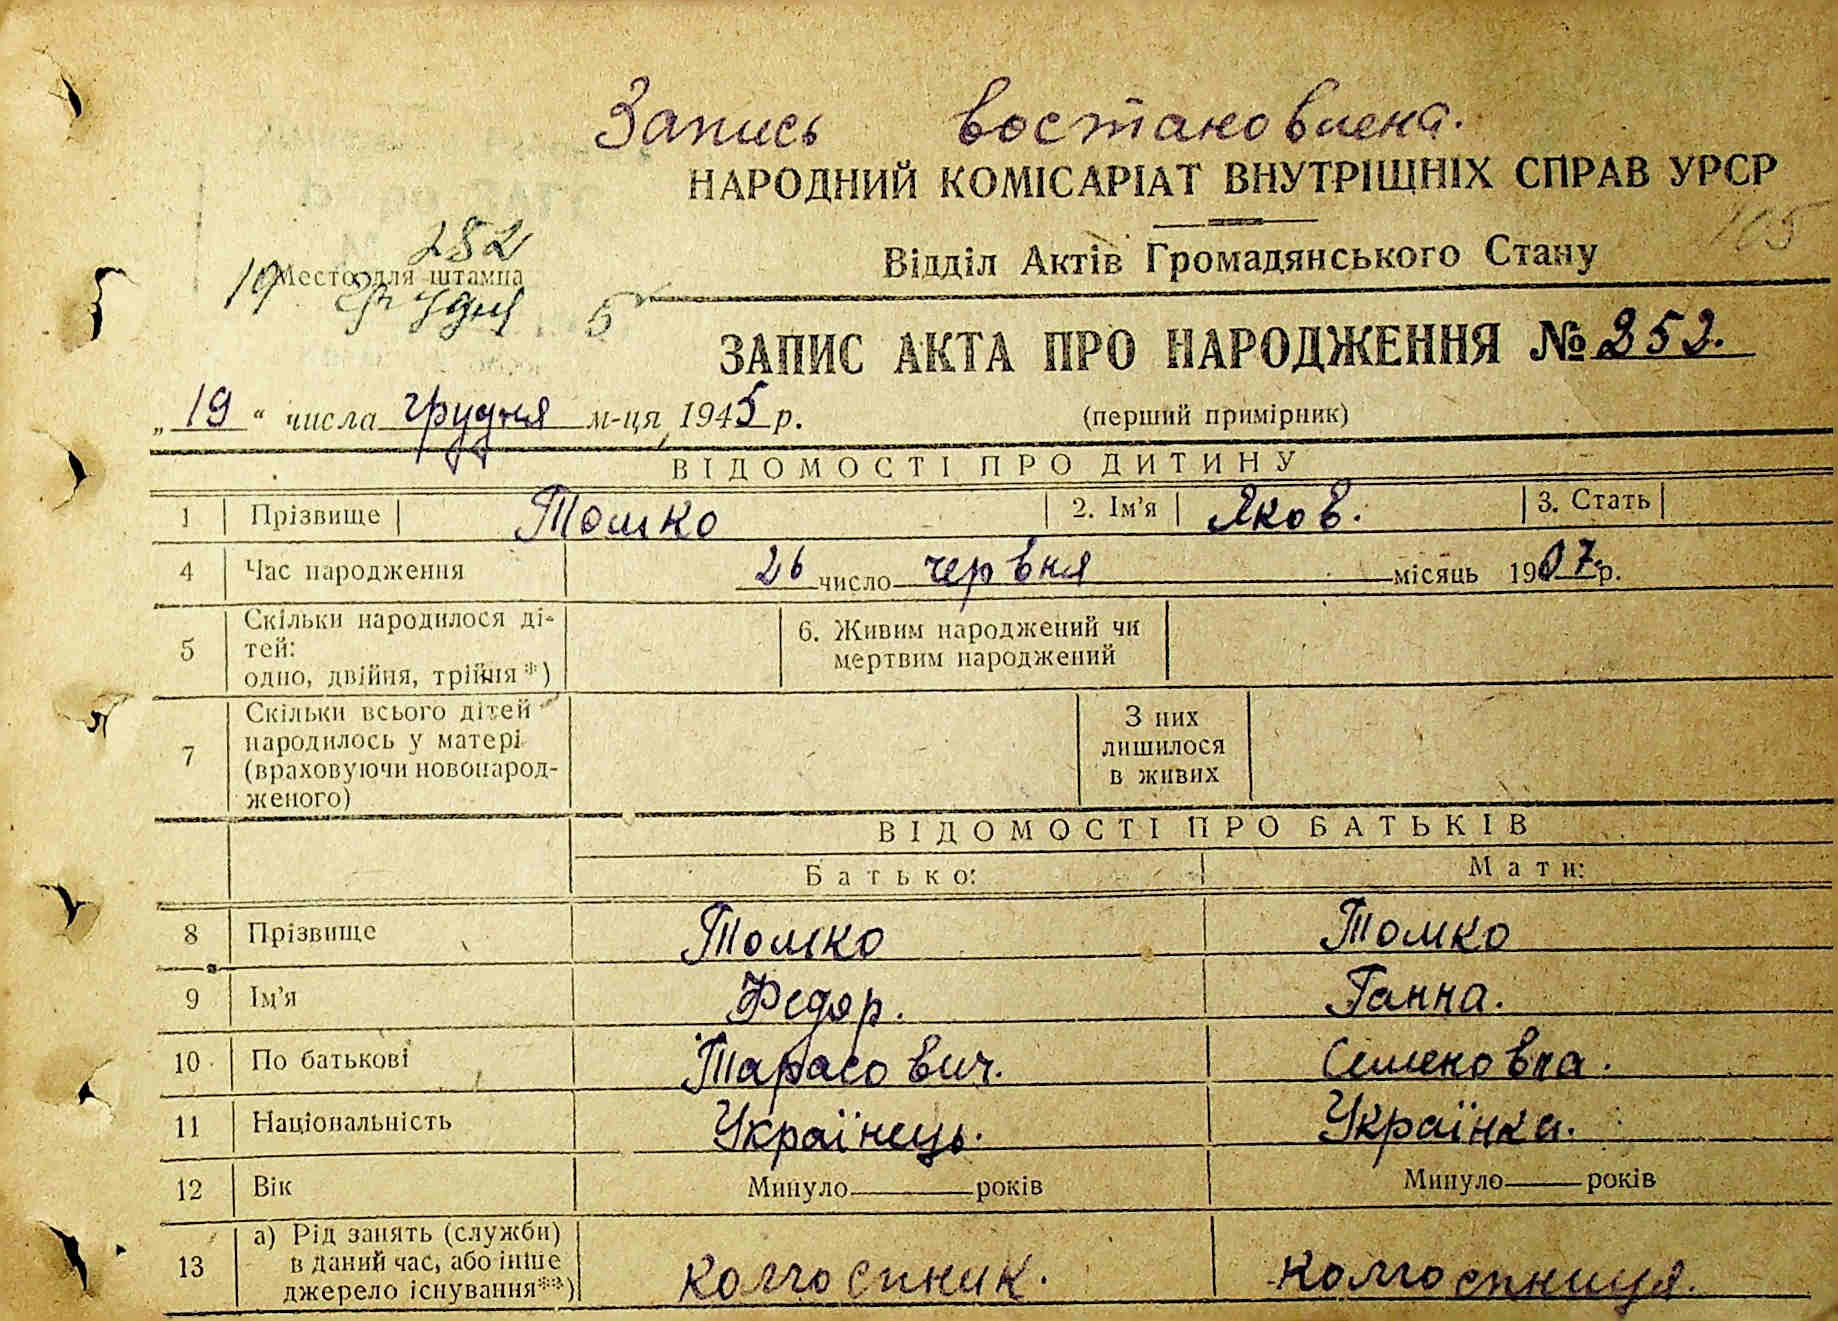 Запись востановлена.
НАРОДНИЙ КОМІСАРІАТ ВНУТРІЩНІХ СПРАВ УРСР
105
Відділ Актів Громадянського Стану
252
Место для штампа
19 грудня 5
ЗАПИС АКТА ПРО НАРОДЖЕННЯ № 252.
„ 19 “ числа грудня м-ця, 1945 р. (перший примірник)
ВІДОМОСТІ ПРО ДИТИНУ
1 Прізвище Томко 2. Ім'я Яков. 3. Стать
4 Час народження 26 число червня місяць 1907 р.
5 Скільки народилося ді-
тей:
одно, двійня, трійня *)
6. Живим народжений чи
мертвим народжений
7 Скільки всього дітей
народилось у матері
(враховуючи новонарод-
женого)
З них
лишилося
в живих
ВІДОМОСТІ ПРО БАТЬКІВ
Батько: Мати:
8 Прізвище Томко Томко
9 Ім'я Федор. Ганна.
10 По батькові Тарасович. Семеновна.
11 Національність Українець. Українка.
12 Вік Минуло років Минуло років
13 а) Рід занять (служби)
в даний час, або інше
джерело існування**)
колгоспник. колгоспниця.